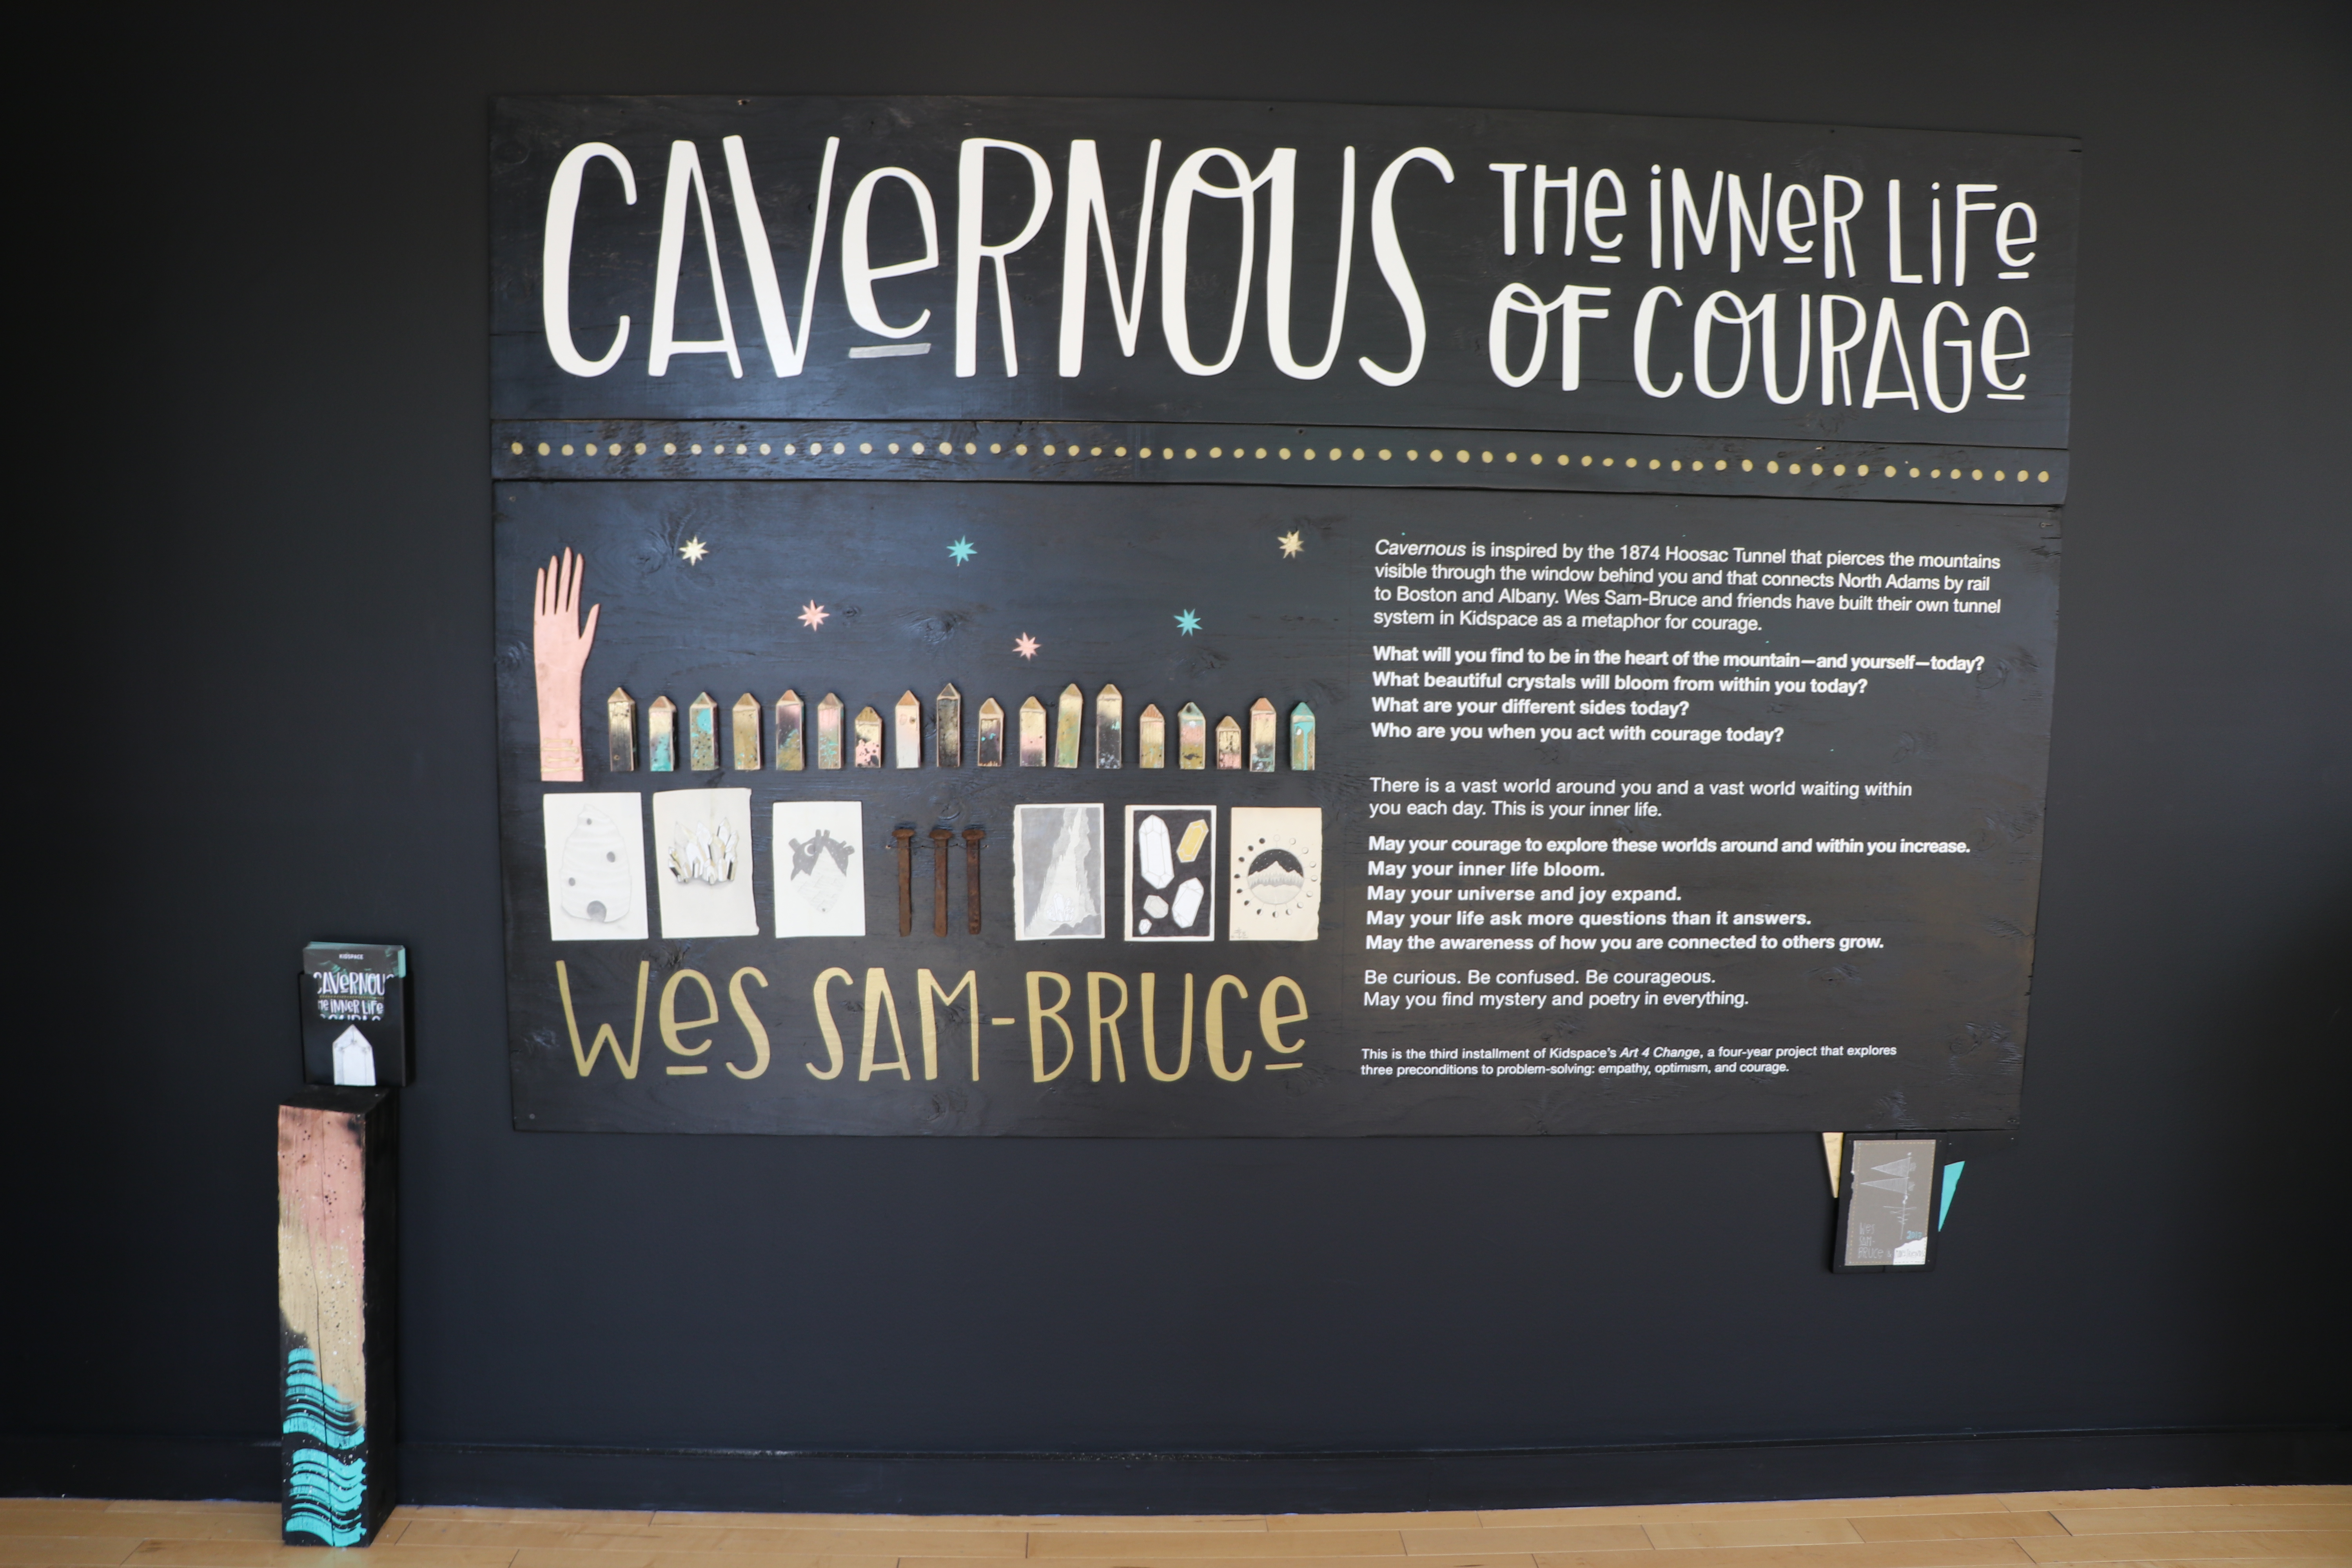 CAVeRNOUS
THe iNNeR LiFe
OF COURAGe
Cavernous is inspired by the 1874 Hoosac Tunnel that pierces the mountains
visible through the window behind you and that connects North Adams by rail
to Boston and Albany. Wes Sam-Bruce and friends have built their own tunnel
system in Kidspace as a metaphor for courage.
What will you find to be in the heart of the mountain—and yourself—today?
What beautiful crystals will bloom from within you today?
What are your different sides today?
Who are you when you act with courage today?
There is a vast world around you and a vast world waiting within
you each day. This is your inner life.
May your courage to explore these worlds around and within you increase.
May your inner life bloom.
May your universe and joy expand.
May your life ask more questions than it answers.
May the awareness of how you are connected to others grow.
Be curious. Be confused. Be courageous.
May you find mystery and poetry in everything.
This is the third installment of Kidspace's Art 4 Change, a four-year project that explores
three preconditions to problem-solving: empathy, optimism, and courage.
WeS SAM-BRUCe
KIDSPACE
CAVeRNOUS
THe iNNeR LiFe